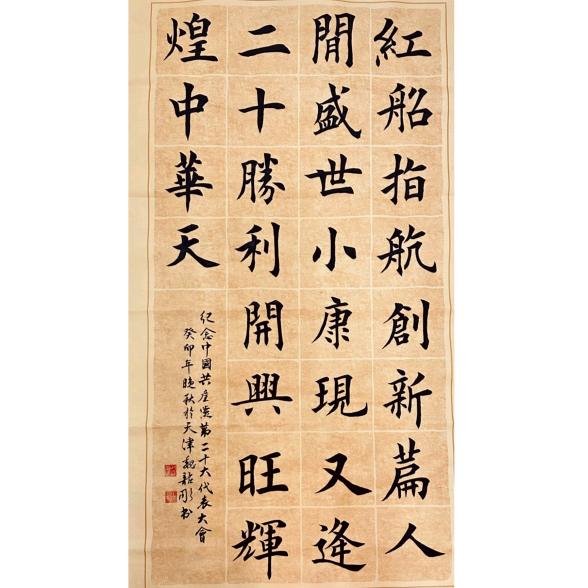 紅船指航創新篇人
閒盛世小康現又逢
二十勝利開興旺輝
煌中華天
紀念中國共產党第二十大代表大會
癸卯年晚秋於天津魏彤书